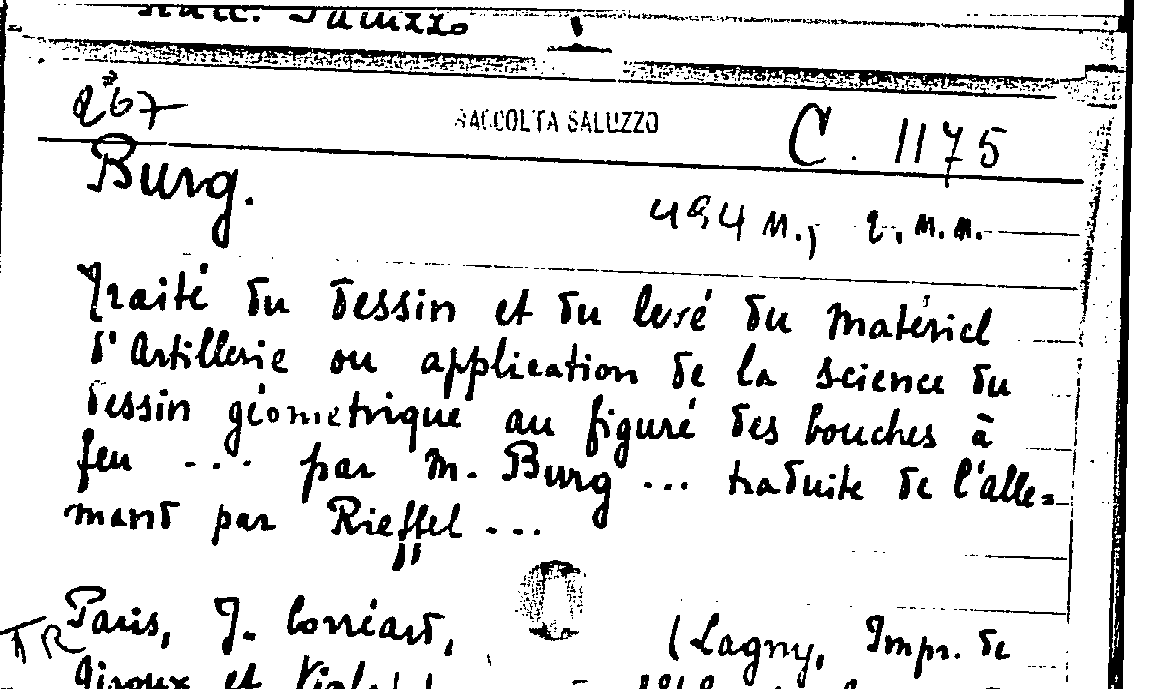 Racc. Saluzzo
267
RACCOLTA SALUZZO
C. 1175
Burg.
494 M., 2. M. M.
Traité du dessin et du levé du matériel
d'Artillerie ou application de la science du
dessin géometrique au figuré des bouches à
feu ... par M. Burg ... traduite de l'alle=
mand par Rieffel ...
Paris, J. Corréard, (Lagny, Impr. de
TR
Giroux et Vialat)